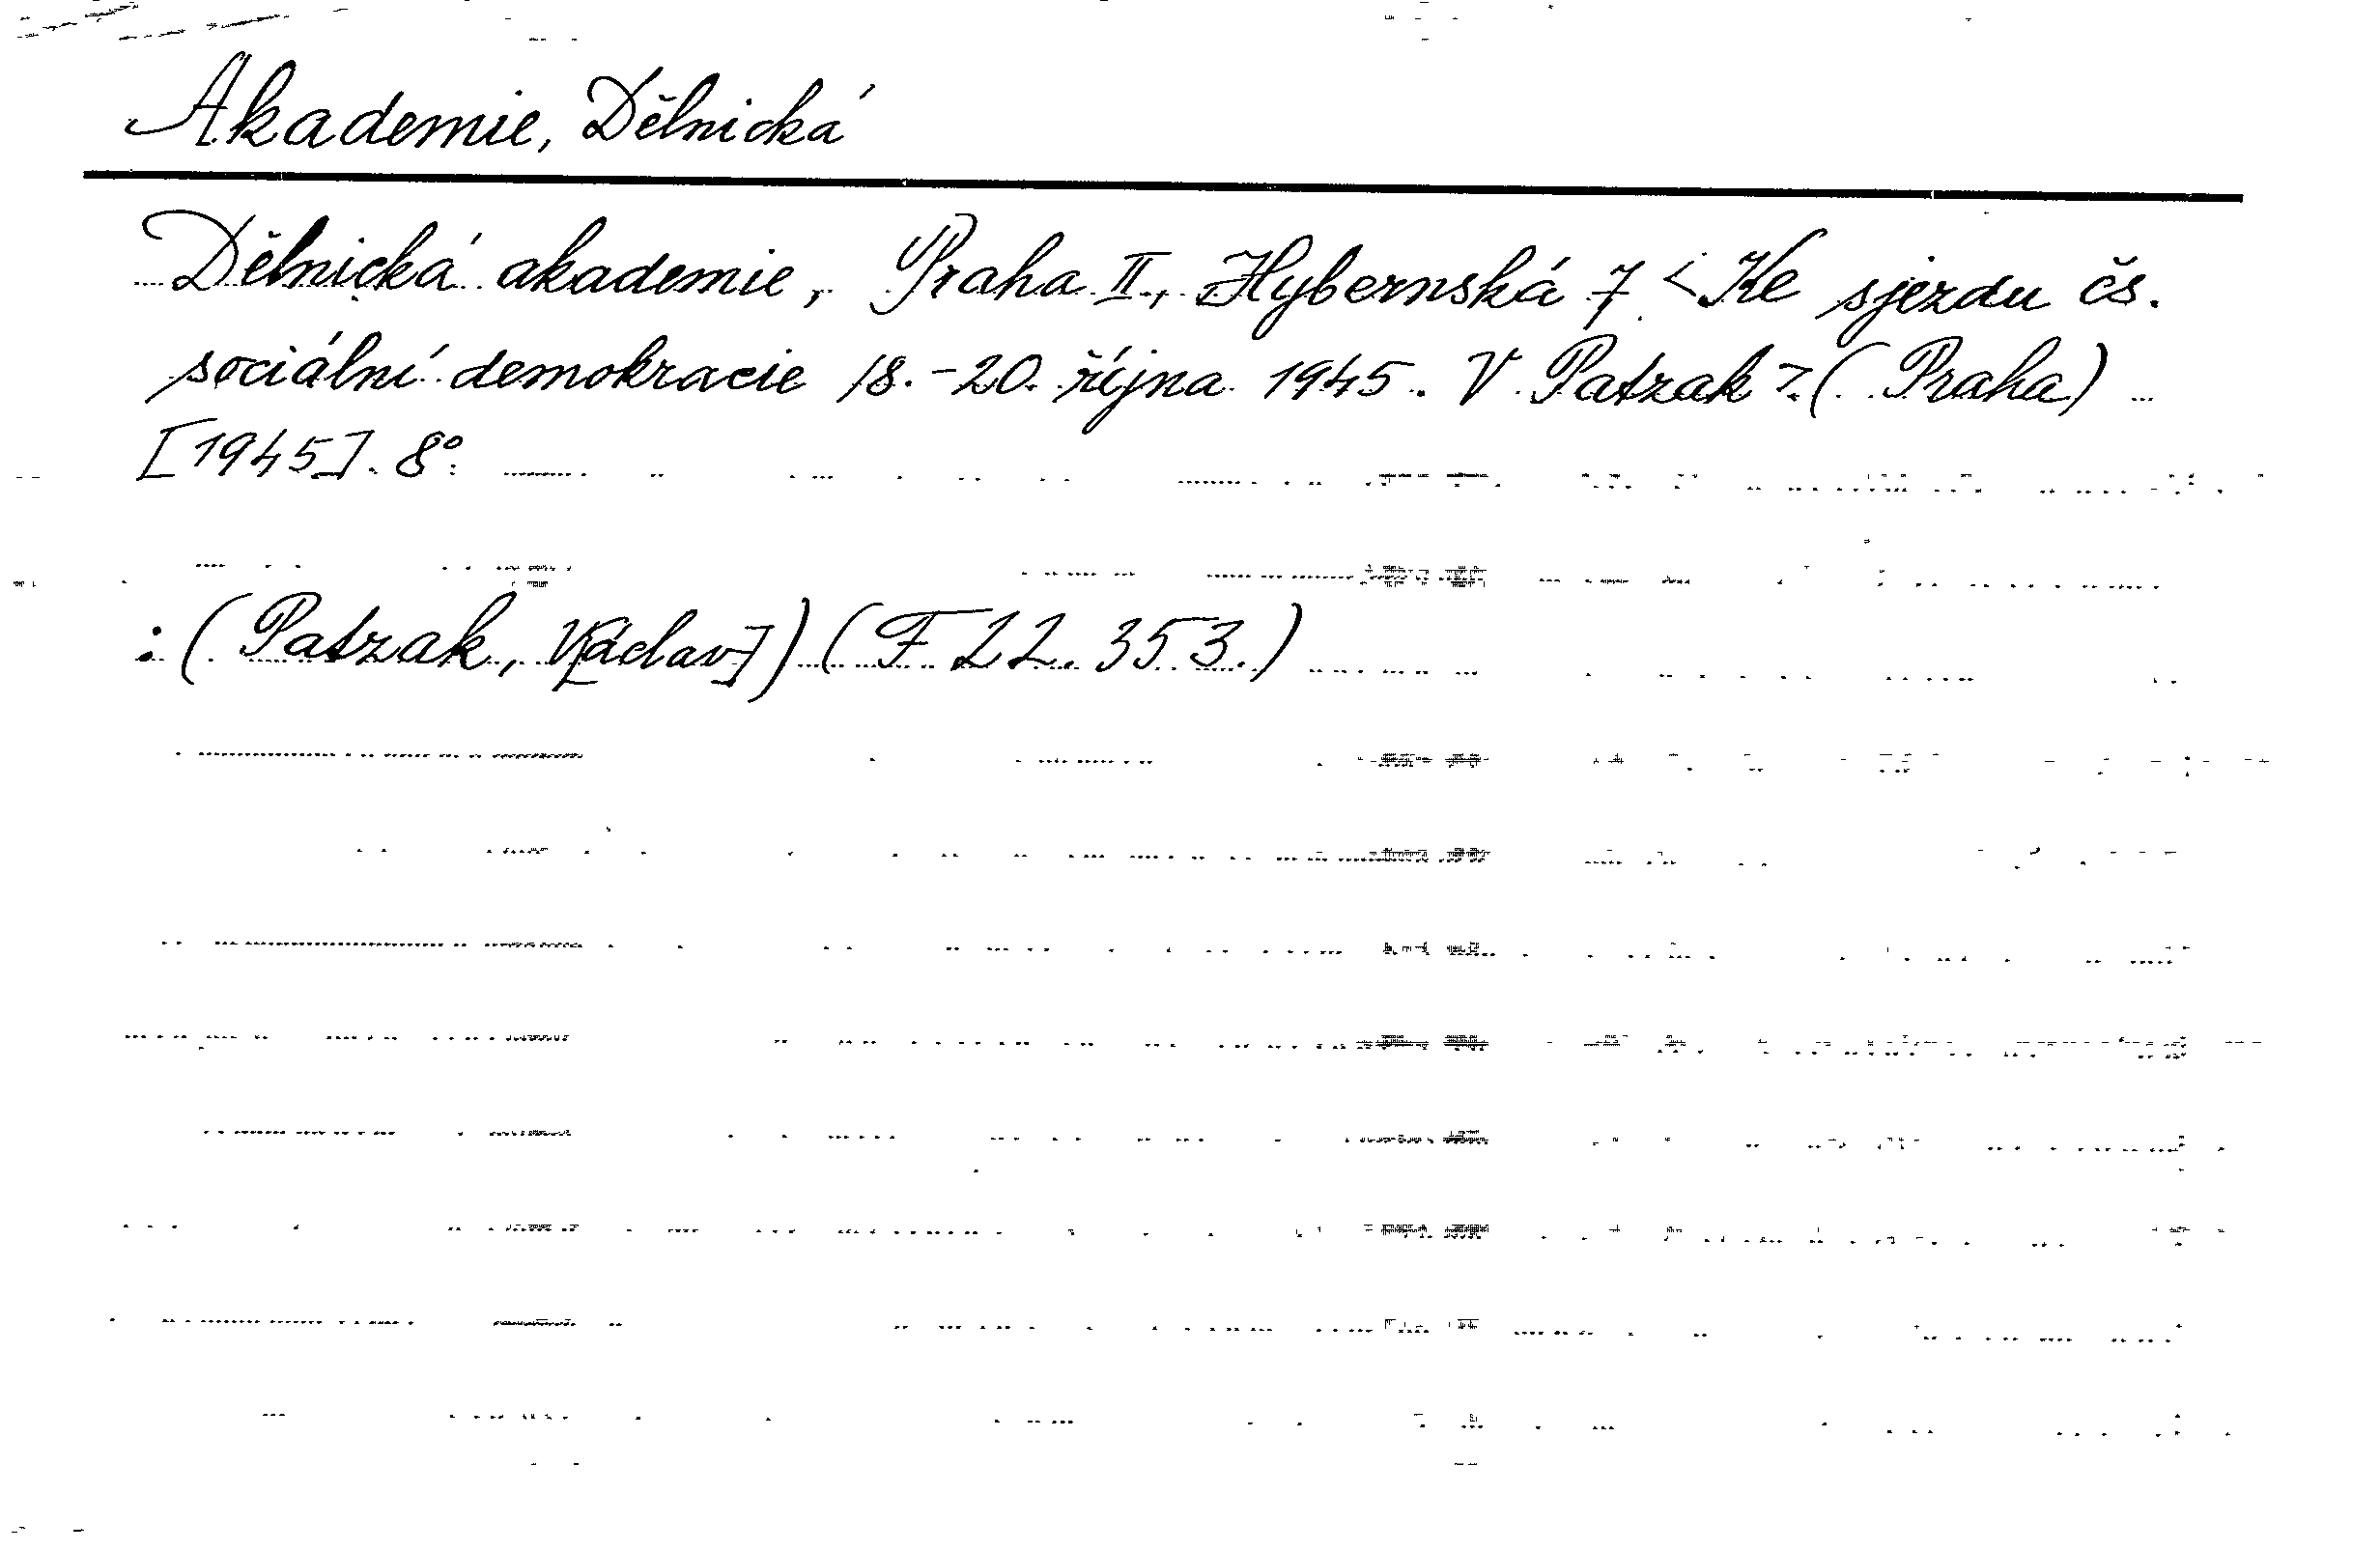 Akademie, Dělnická
Dělnická akademie, Praha II., Hybernská 7. <Ke sjezdu čs.
sociální demokracie 18.-20. října 1945. V Patzak>. (Praha)
[1945]. 8°.
:(Patzak, V[áclav]) (F 22.353.)